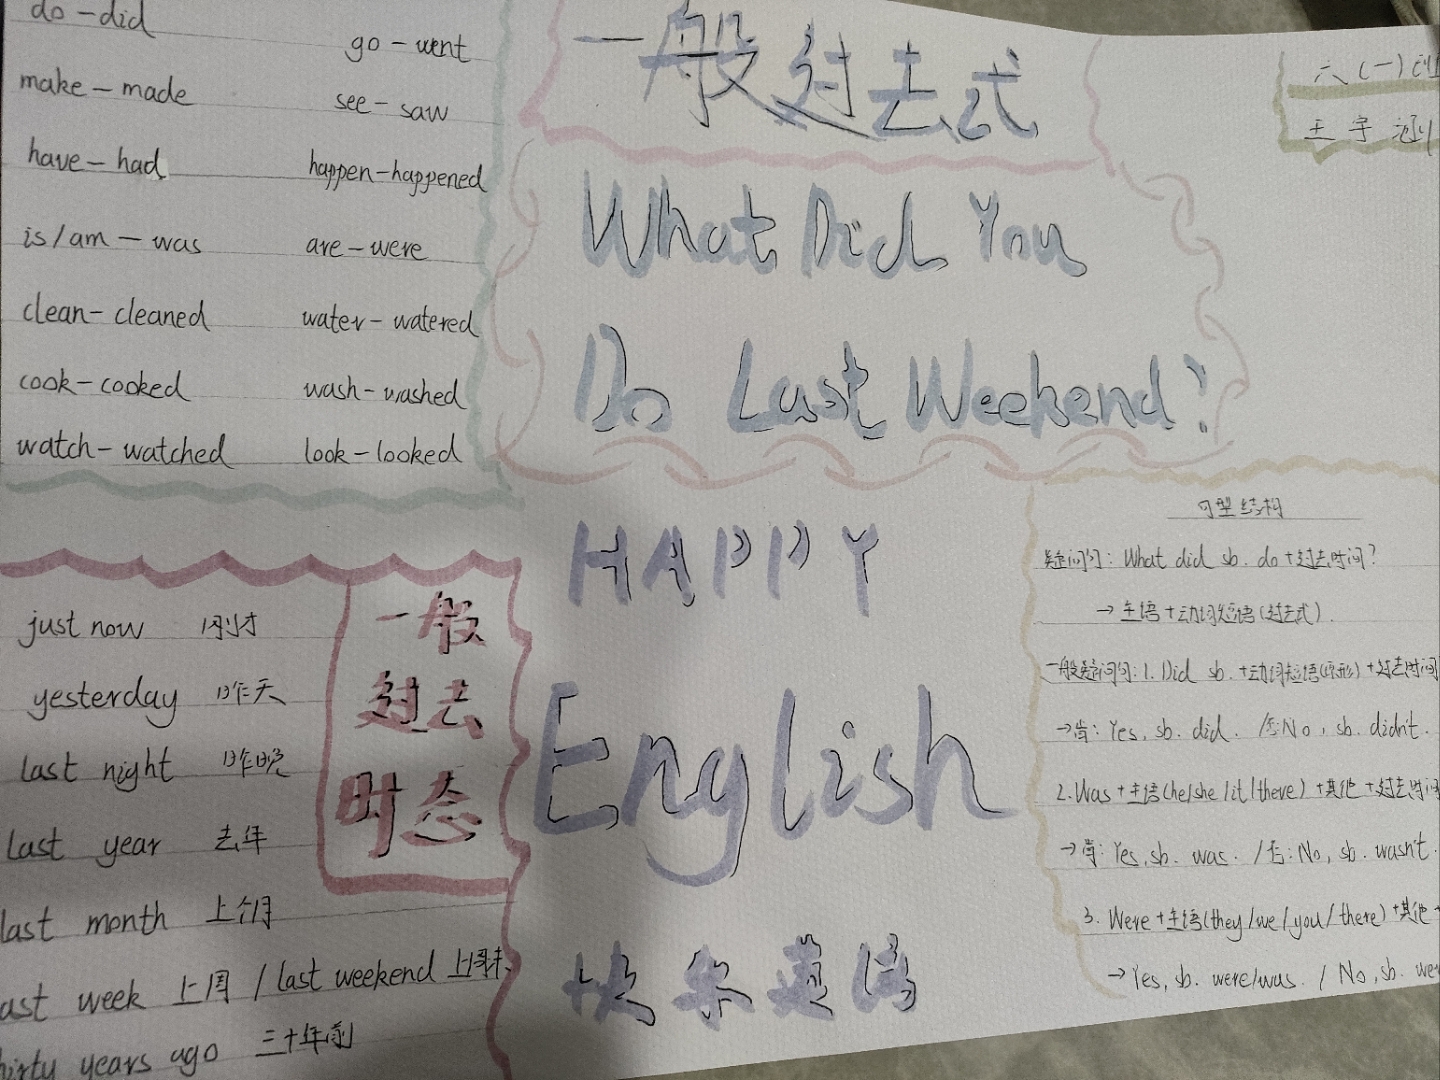 do-did
go-went
make-made
see-saw
have-had
happen-happened
is/am-was
are-were
clean-cleaned
water-watered
cook-cooked
wash-washed
watch-watched
look-looked
一般过去式
六(一)
王宇
What Did You
Do Last Weekend?
HAPPY
English
快乐英语
just now 刚才
yesterday 昨天
last night 昨晚
last year 去年
last month 上个月
week 上周 / last weekend 上周末
years ago 三十年前
一般
过去
时态
句型结构
疑问句: What did sb. do+过去时间?
→主语+动词短语(过去式).
一般疑问句: 1. Did sb. +动词短语(原形)+过去时间
→肯: Yes, sb. did. /否:No, sb. didn't.
2. Was+主语(he/she/it/there)+其他+过去时间
→肯: Yes, sb. was. /否:No, sb. wasn't.
3. Were+主语(they/we/you/there)+其他+
→Yes, sb. were/was. / No, sb.